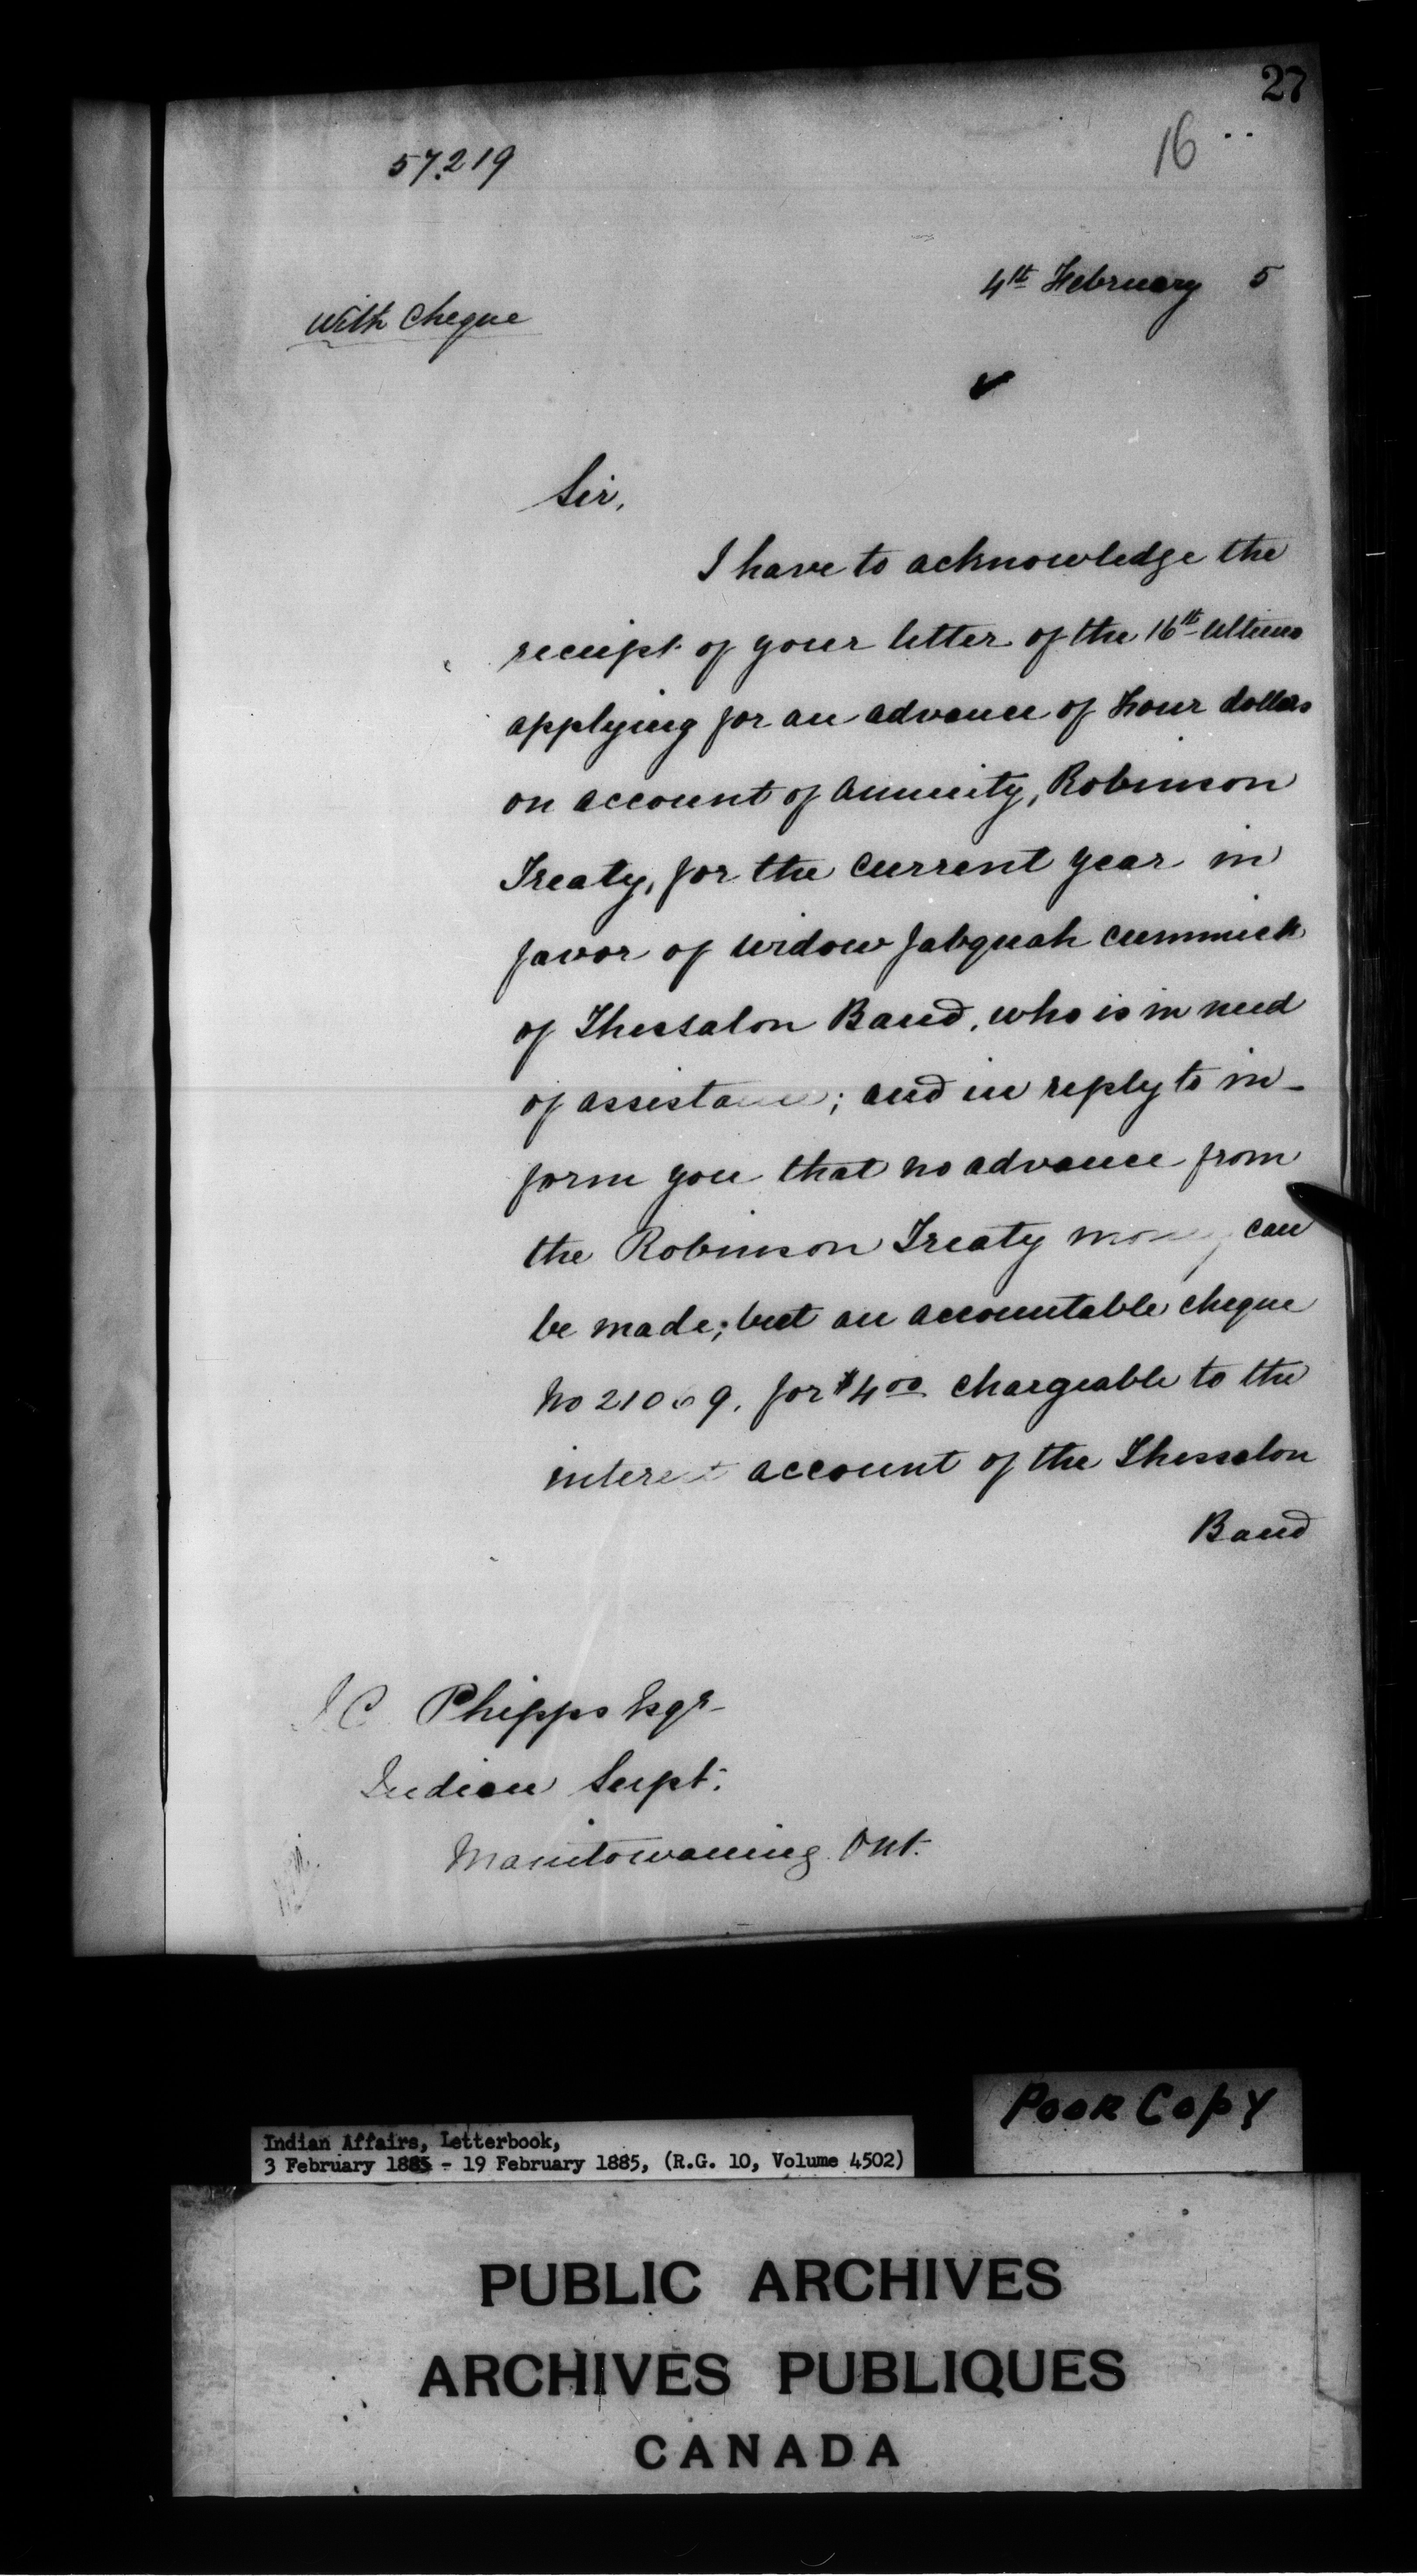 27
16
57.219
4th February 5
With Cheque
Sir,
I have to acknowledge the
receipt of your letter of the 16th Ultimo
applying for an advance of Four dollars
on account of Annuity, Robinson
Treaty, for the Current year in
favor of widow Jabquah cummick
of Thessalon Band, who is in need
of assistance; and in reply to in-
form you that no advance from
the Robinson Treaty money can
be made; but an accountable cheque
No 21069. for $4.00 chargeable to the
interest account of the Thessalon
Band
J.C. Phipps Esqr
Indian Supt.
Manitowaning. Ont.
Poor Copy
Indian Affairs, Letterbook,
3 February 1885 - 19 February 1885, (R.G. 10, Volume 4502)
PUBLIC ARCHIVES
ARCHIVES PUBLIQUES
CANADA